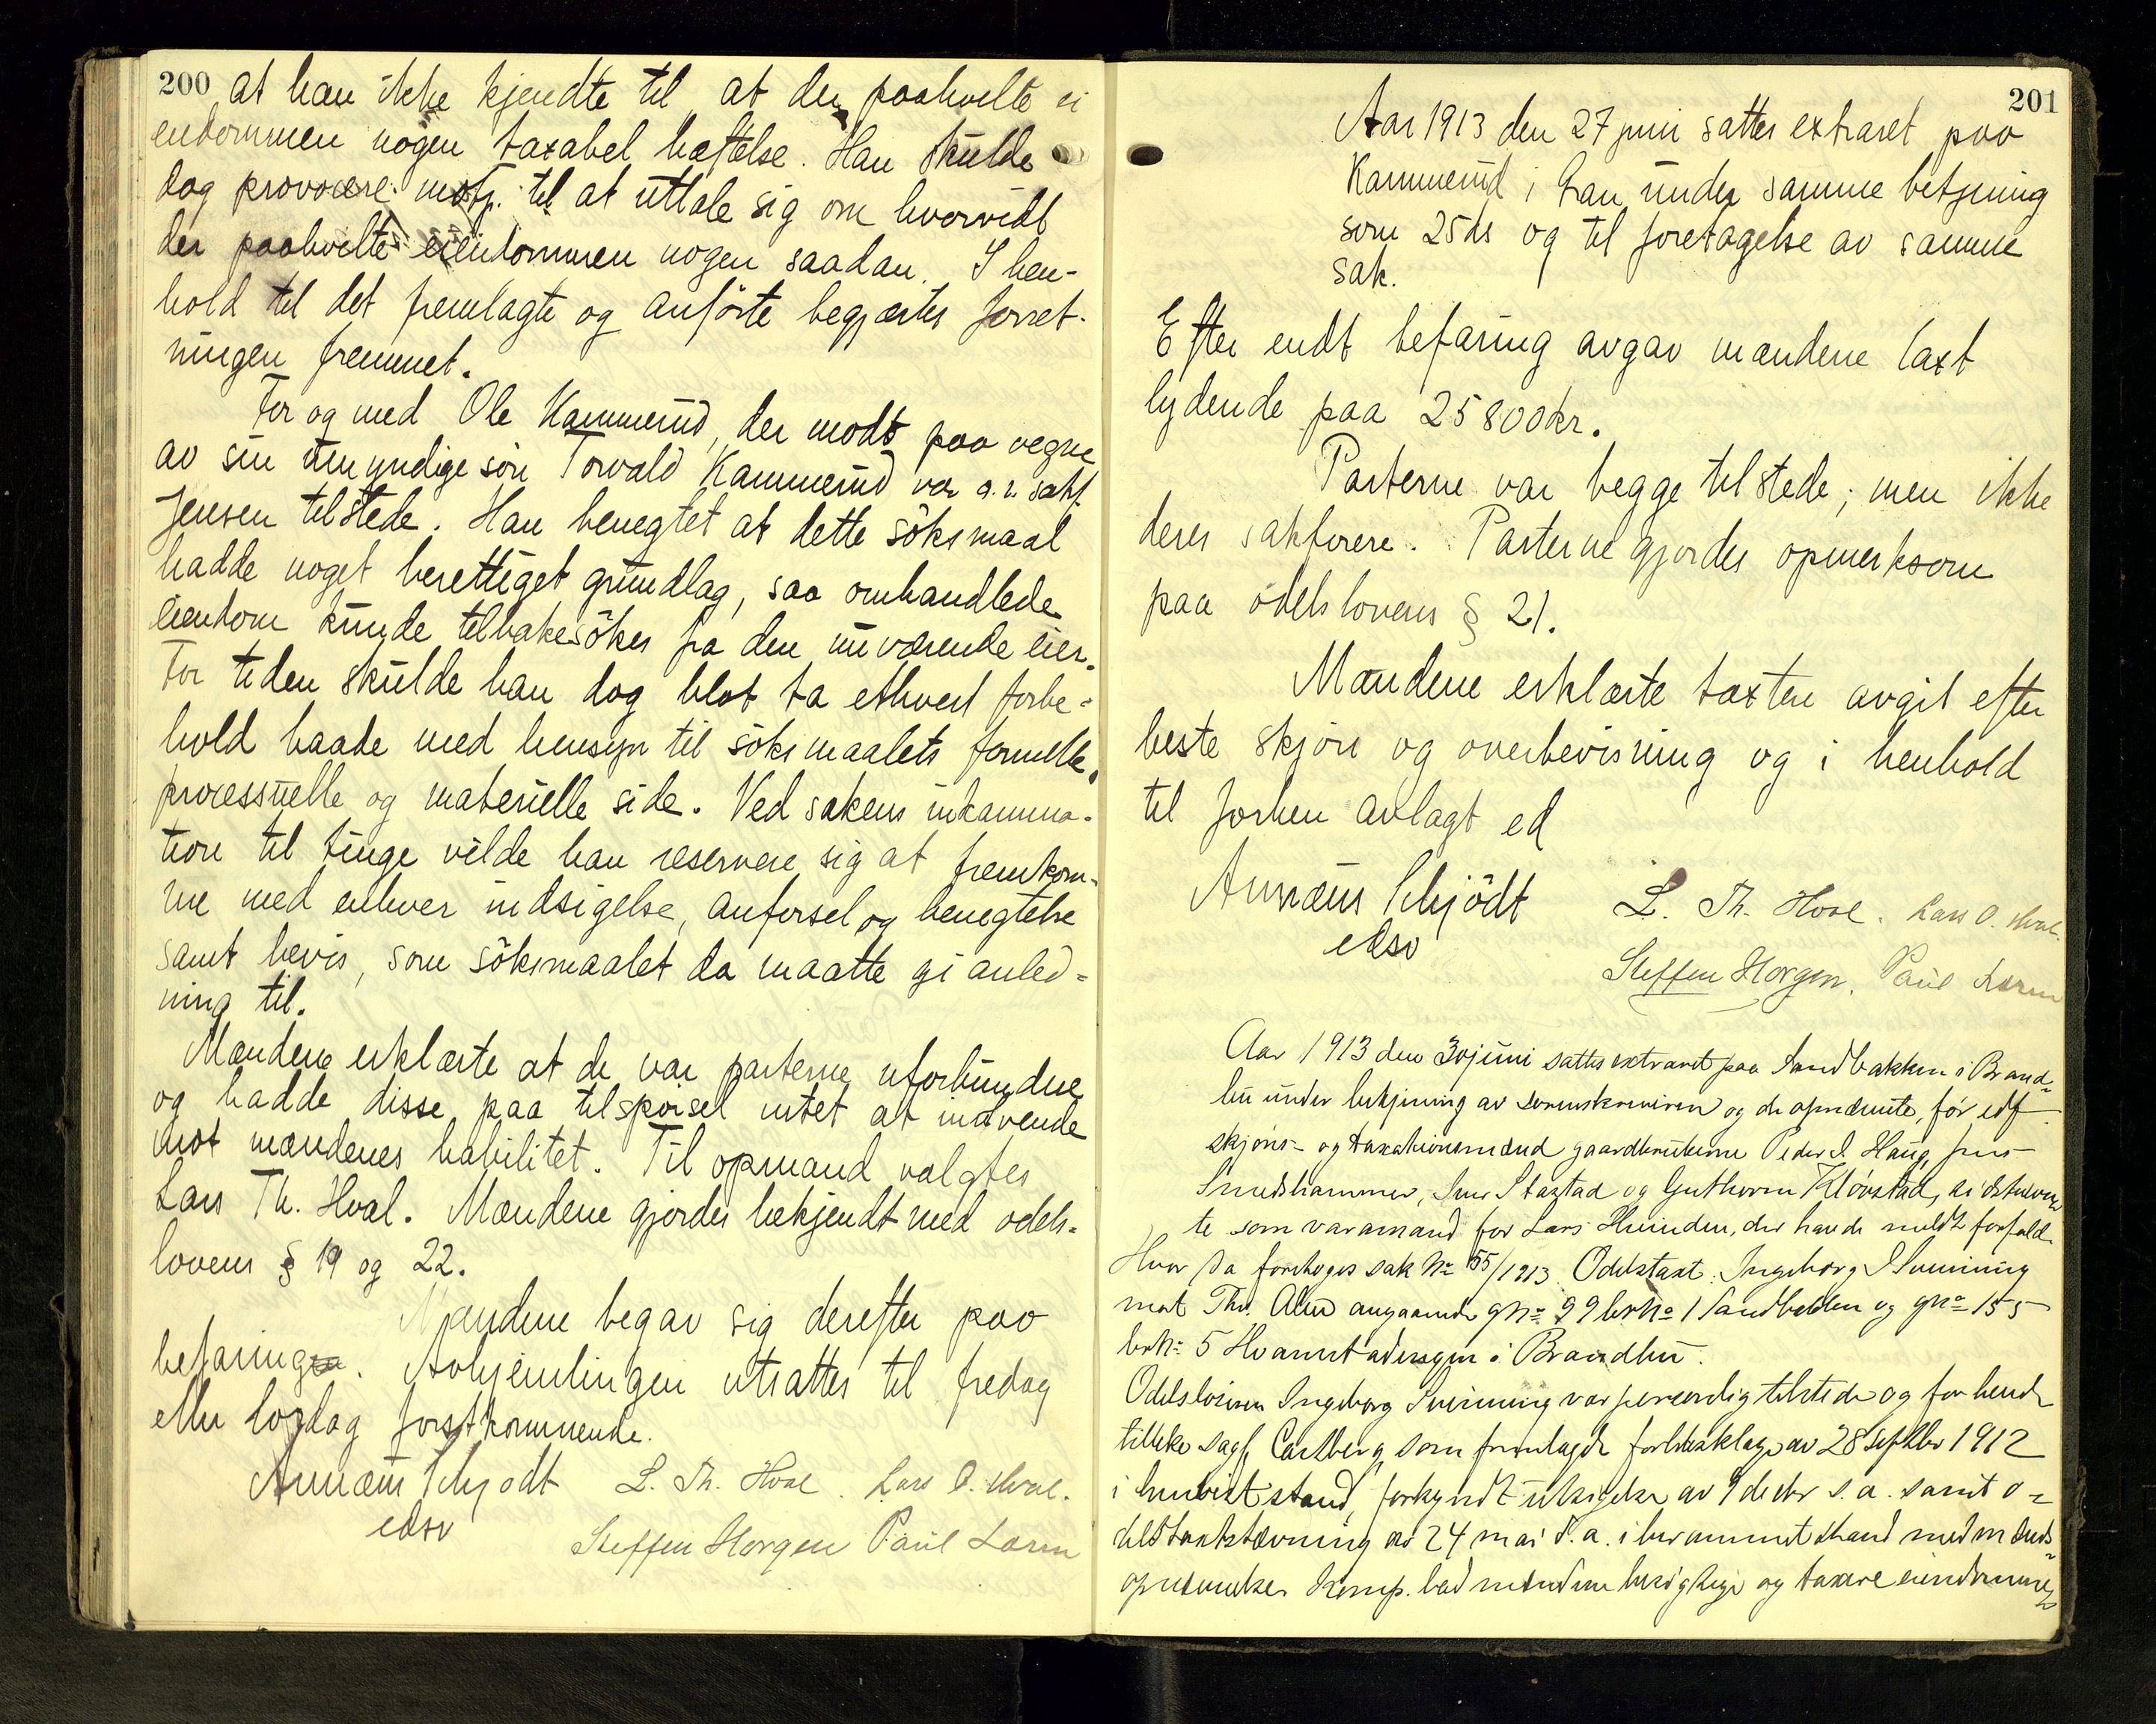 200 at han ikke kjendte til at der paahvilte ei
endommen nogen taxabel heftelse. Han skulde
dog provocere motp. til at uttale sig om hvorvidt
der paahvilte eiendommen nogen saadan. I hen-
hold til det fremlagte og anførte begjærtes forret-
ningen fremmet.
For og med Ole Kammerud, der mødt paa vegne
av sin umyndige søn Torvald Kammerud var o.r. sakf.
Jensen tilstede. Han benegtet at dette søksmaal
hadde noget berettiget grundlag, saa omhandlede
eiendom kunde tilbakesøkes fra den nuværende eier.
For tiden skulde han dog blot ta ethvert forbe-
hold baade med hensyn til søksmaalets formelle,
processuelle og materielle side. Ved sakens inkamma-
tion til tinge vilde han reservere sig at fremkom-
me med enhver indsigelse, anførsel og benegtelse
samt bevis, som søksmaalet da maatte gi anled-
ning til.
Mændene erklærte at de var parterne uforbundne
og hadde disse paa tilspørsel intet at indvende
mot mændenes habilitet. Til opmand valgtes
Lars Th. Hval. Mændene gjordes bekjendt med odels-
lovens § 19 og 22.
Mændene begav sig derefter paa
befaring. Avhjemlingen utsattes til fredag
eller lørdag førstkommende.
Annæus Schjødt L. Th. Hval. Lars O. Hval.
edsv Steffen Horgen Paul Larm
201
Aar 1913 den 27 juni sattes extraret paa
Kammerud i Gran under samme betjening
som 25 ds og til foretagelse av samme
sak.
Efter endt befaring avgav mændene taxt
lydende paa 25800 kr.
Parterne var begge tilstede; men ikke
deres sakførere. Parterne gjordes opmerksom
paa odelslovens § 21.
Mændene erklærte taxten avgit efter
beste skjøn og overbevisning og i henhold
til forhen avlagt ed
Annæus Schjødt L. Th. Hval. Lars O. Hval.
edsv Steffen Horgen. Paul Larm
Aar 1913 den 30 juni sattes extraret paa Sandbakken i Brand-
bu under betjening av sorenskriveren og de opnævnte, før edf
skjøns- og taxationsmænd gaardbrukerne Peder I. Haug, Jens
Smedshammer, Iver Staxtad og Guthorm Kløvstad,
te som varamand for Lars Hvinden, der havde meldt forfald.
Hvor da foretoges sak No 55/1913. Odelstaxt: Ingeborg Svinning
mot Thv. Alm angaaende gno 99 brno 1 Sandbakken og gno 155
brno 5 Hvamstadengen i Brandbu.
Odelsløseren Ingeborg Svinning var personlig tilstede og for hende
tillike sagf. Carlberg, som fremlagde forliksklage av 28 septbr 1912
i henvist stand, forkyndt utsigelse av 9 decbr s.a. samt o-
delstaxtstævning av 24 mai d.a. i berammet stand med mænds-
opnævnelse. Komp. bad mændene besigtige og taxere eiendommene